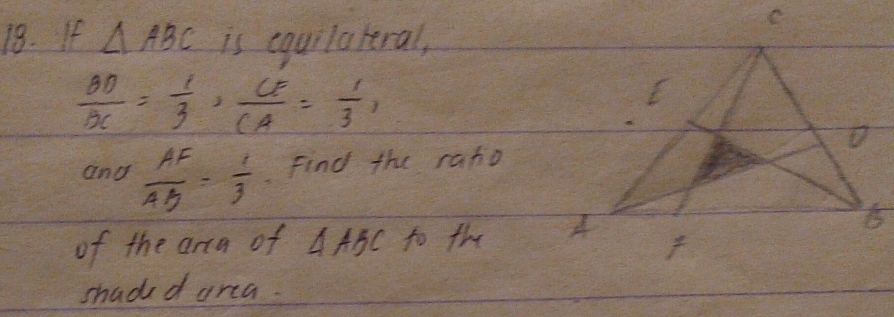 18. If △ ABC is equilateral,
BD/BC = 1/3, CE/CA = 1/3,
and AF/AB = 1/3. Find the ratio
of the area of △ ABC to the
shaded area.
C
E
D
A
F
B